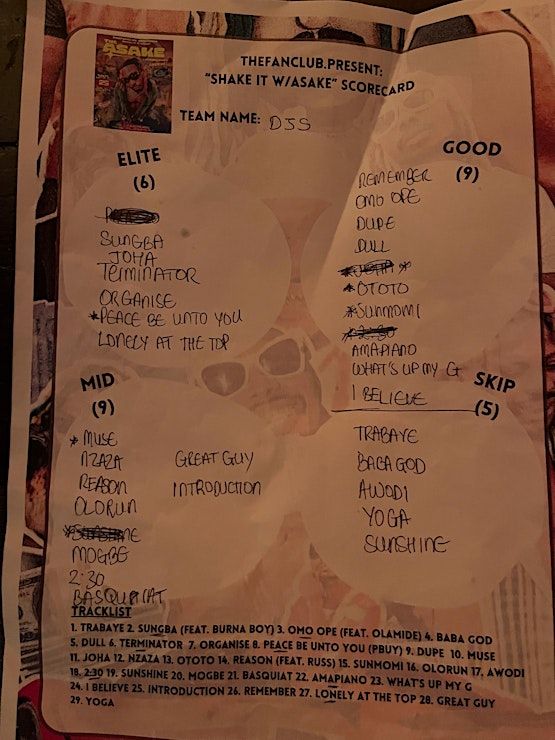 ASAKE
THEFANCLUB.PRESENT:
"SHAKE IT W/ASAKE" SCORECARD
TEAM NAME: DJS
ELITE
(6)
SUNGBA
JOHA
TERMINATOR
ORGANISE
*PEACE BE UNTO YOU
LONELY AT THE TOP
GOOD
(9)
REMEMBER
OMO OPE
DUPE
DULL
*OTOTO
*SUNMOMI
AMAPIANO
WHAT'S UP MY G
I BELIEVE
MID
(9)
* MUSE
NZAZA
REASON
OLORUN
MOGBE
2:30
BASQUIAT
GREAT GUY
INTRODUCTION
SKIP
(5)
TRABAYE
BABA GOD
AWODI
YOGA
SUNSHINE
TRACKLIST
1. TRABAYE 2. SUNGBA (FEAT. BURNA BOY) 3. OMO OPE (FEAT. OLAMIDE) 4. BABA GOD
5. DULL 6. TERMINATOR 7. ORGANISE 8. PEACE BE UNTO YOU (PBUY) 9. DUPE 10. MUSE
11. JOHA 12. NZAZA 13. OTOTO 14. REASON (FEAT. RUSS) 15. SUNMOMI 16. OLORUN 17. AWODI
18. 2:30 19. SUNSHINE 20. MOGBE 21. BASQUIAT 22. AMAPIANO 23. WHAT'S UP MY G
24. I BELIEVE 25. INTRODUCTION 26. REMEMBER 27. LONELY AT THE TOP 28. GREAT GUY
29. YOGA